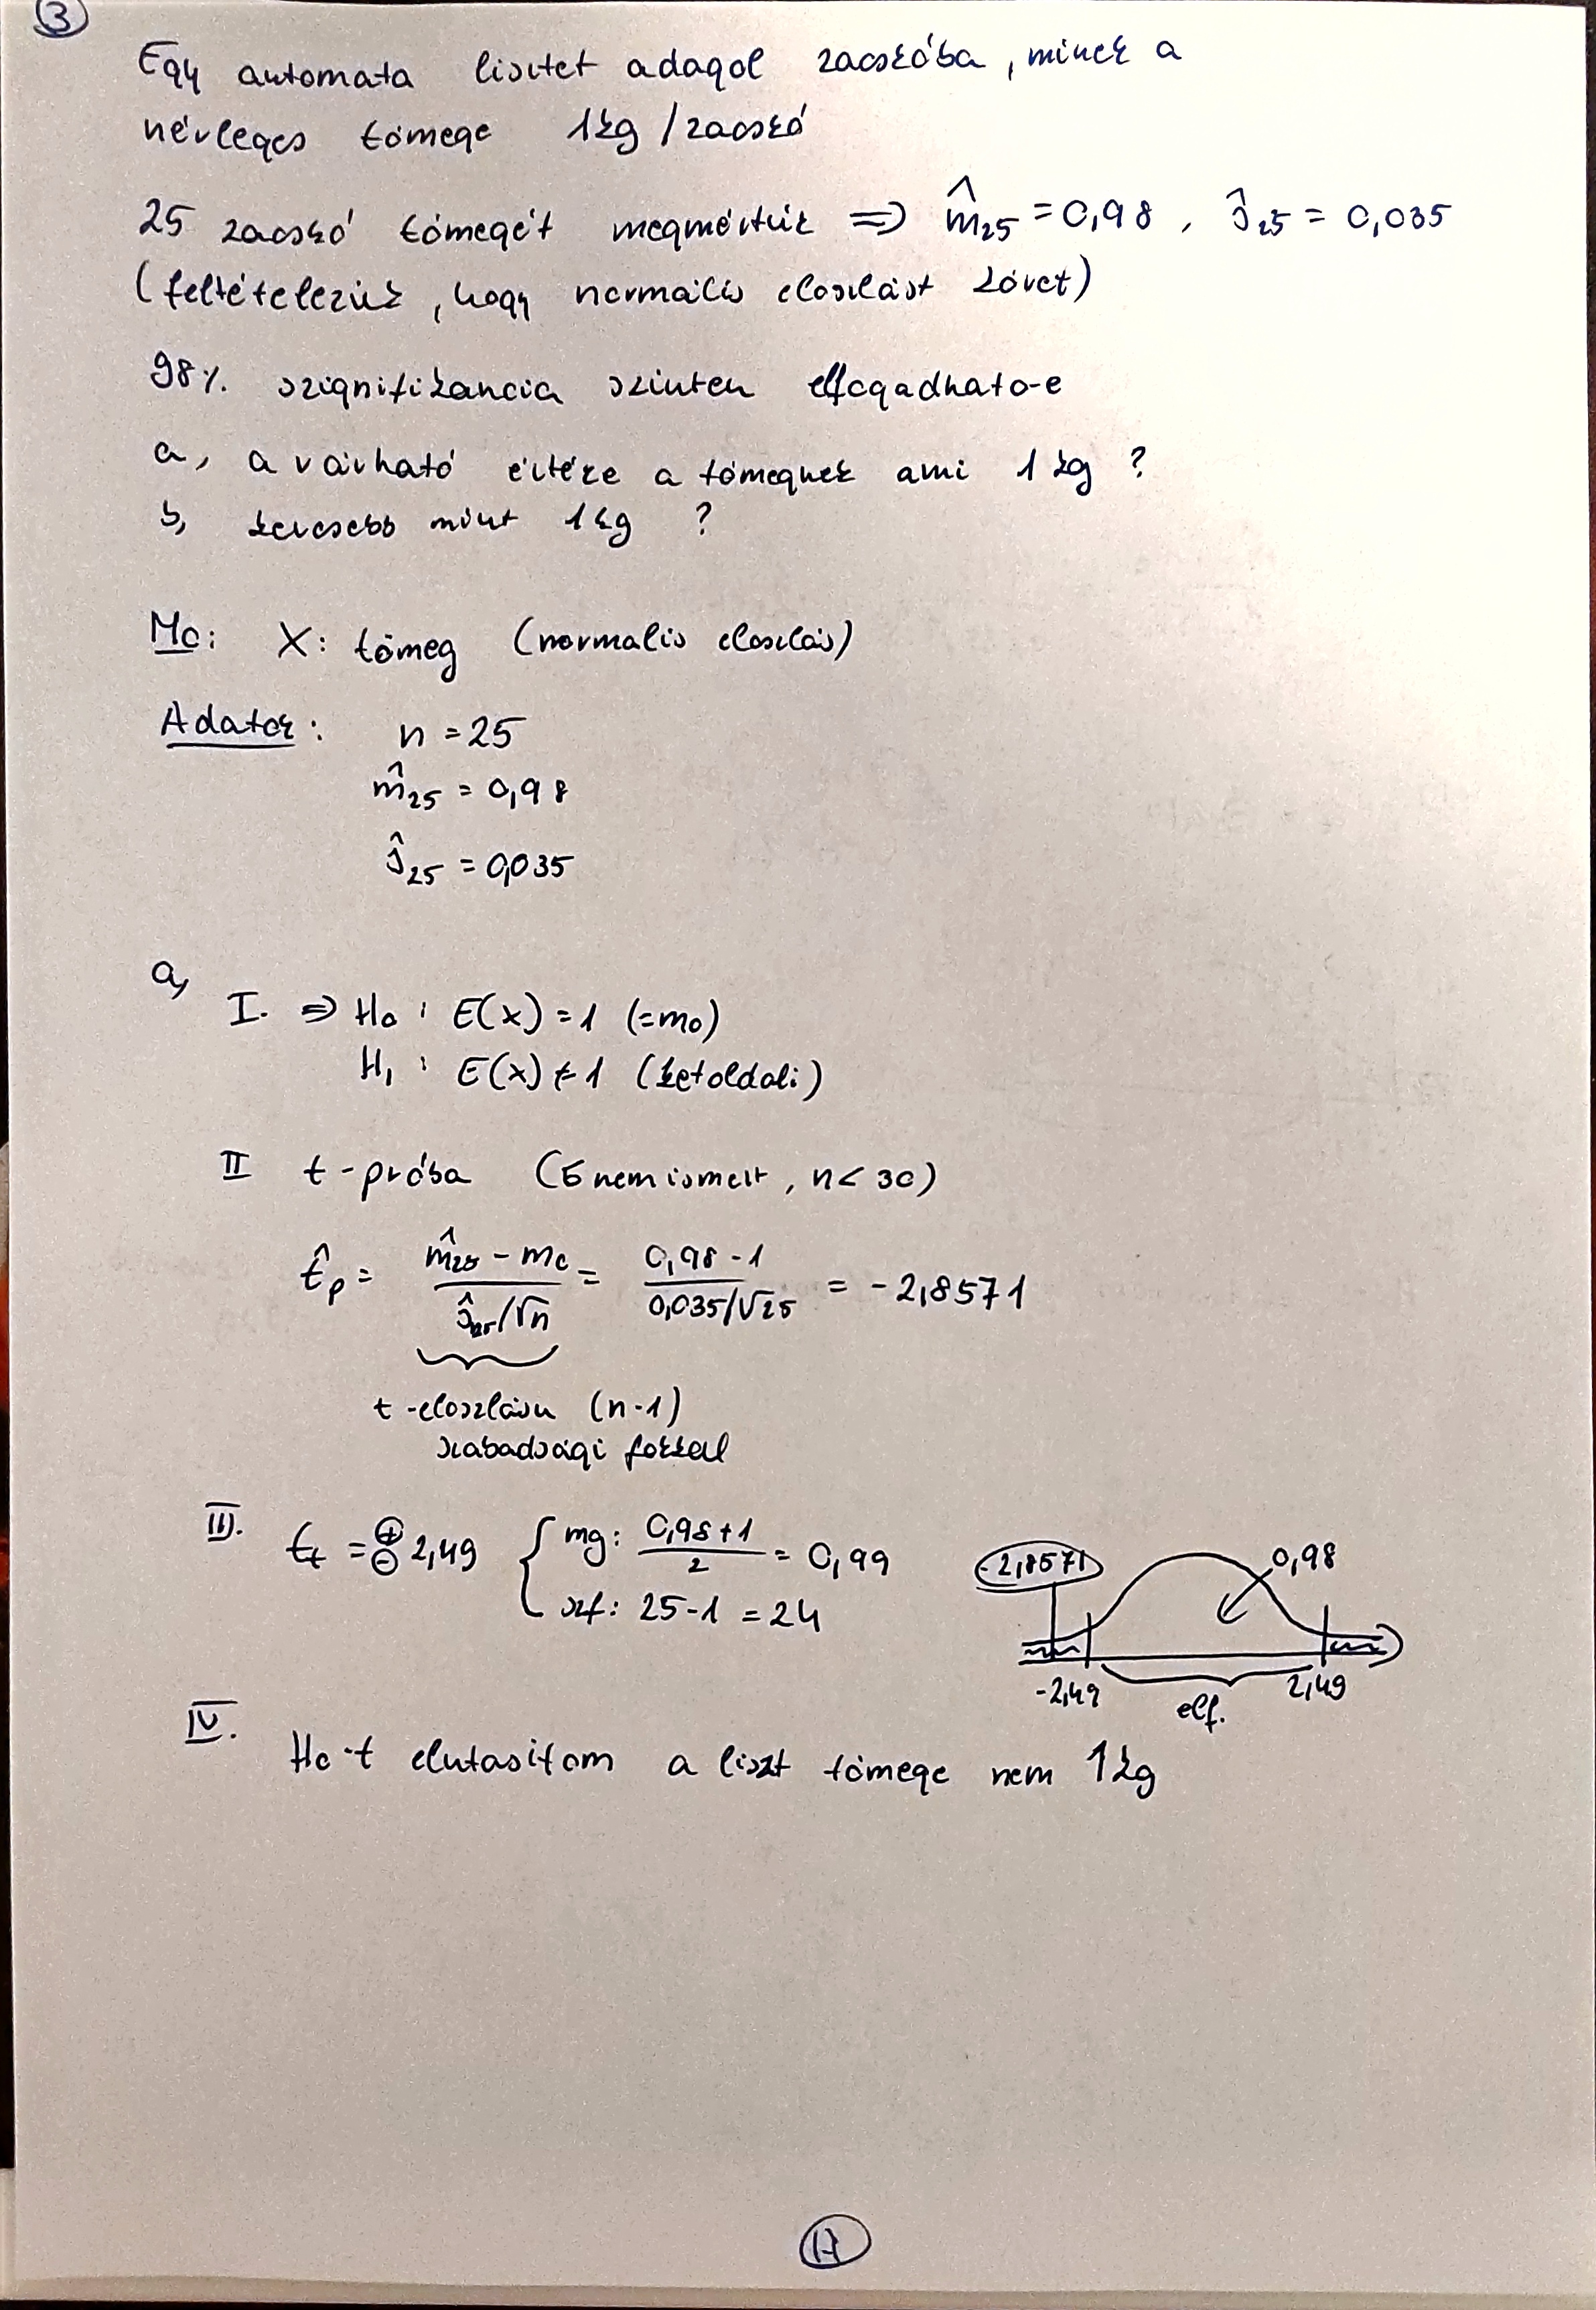 3
Egy automata lisztet adagol zacskóba, minek a
névleges tömege 1kg / zacskó
25 zacskó tömegét megmértük ⇒ m̂₂₅ = 0,98 , ŝ₂₅ = 0,035
(feltételezzük, hogy normális eloszlást követ)
98% szignifikancia szinten elfogadható-e
a, a várható értéke a tömegnek ami 1 kg ?
b, kevesebb mint 1kg ?
Mo: X: tömeg (normalis eloszlás)
Adatok: n = 25
m̂₂₅ = 0,98
ŝ₂₅ = 0,035
a,
I. ⇒ H₀ : E(x) = 1 (=m₀)
H₁ : E(x) ≠ 1 (kétoldali)
II t-próba (σ nem ismert, n < 30)
t̂ₚ = (m̂₂₅ - m₀) / (ŝ₂₅/√n) = (0,98 - 1) / (0,035/√25) = -2,8571
t-eloszlásu (n-1)
szabadsági fokkal
III. tₜ = ⊕⊖ 2,49 { mg: (0,98+1)/2 = 0,99
szf: 25-1 = 24
-2,8571 0,98
-2,49 elf. 2,49
IV. H₀-t elutasitom a liszt tömege nem 1kg